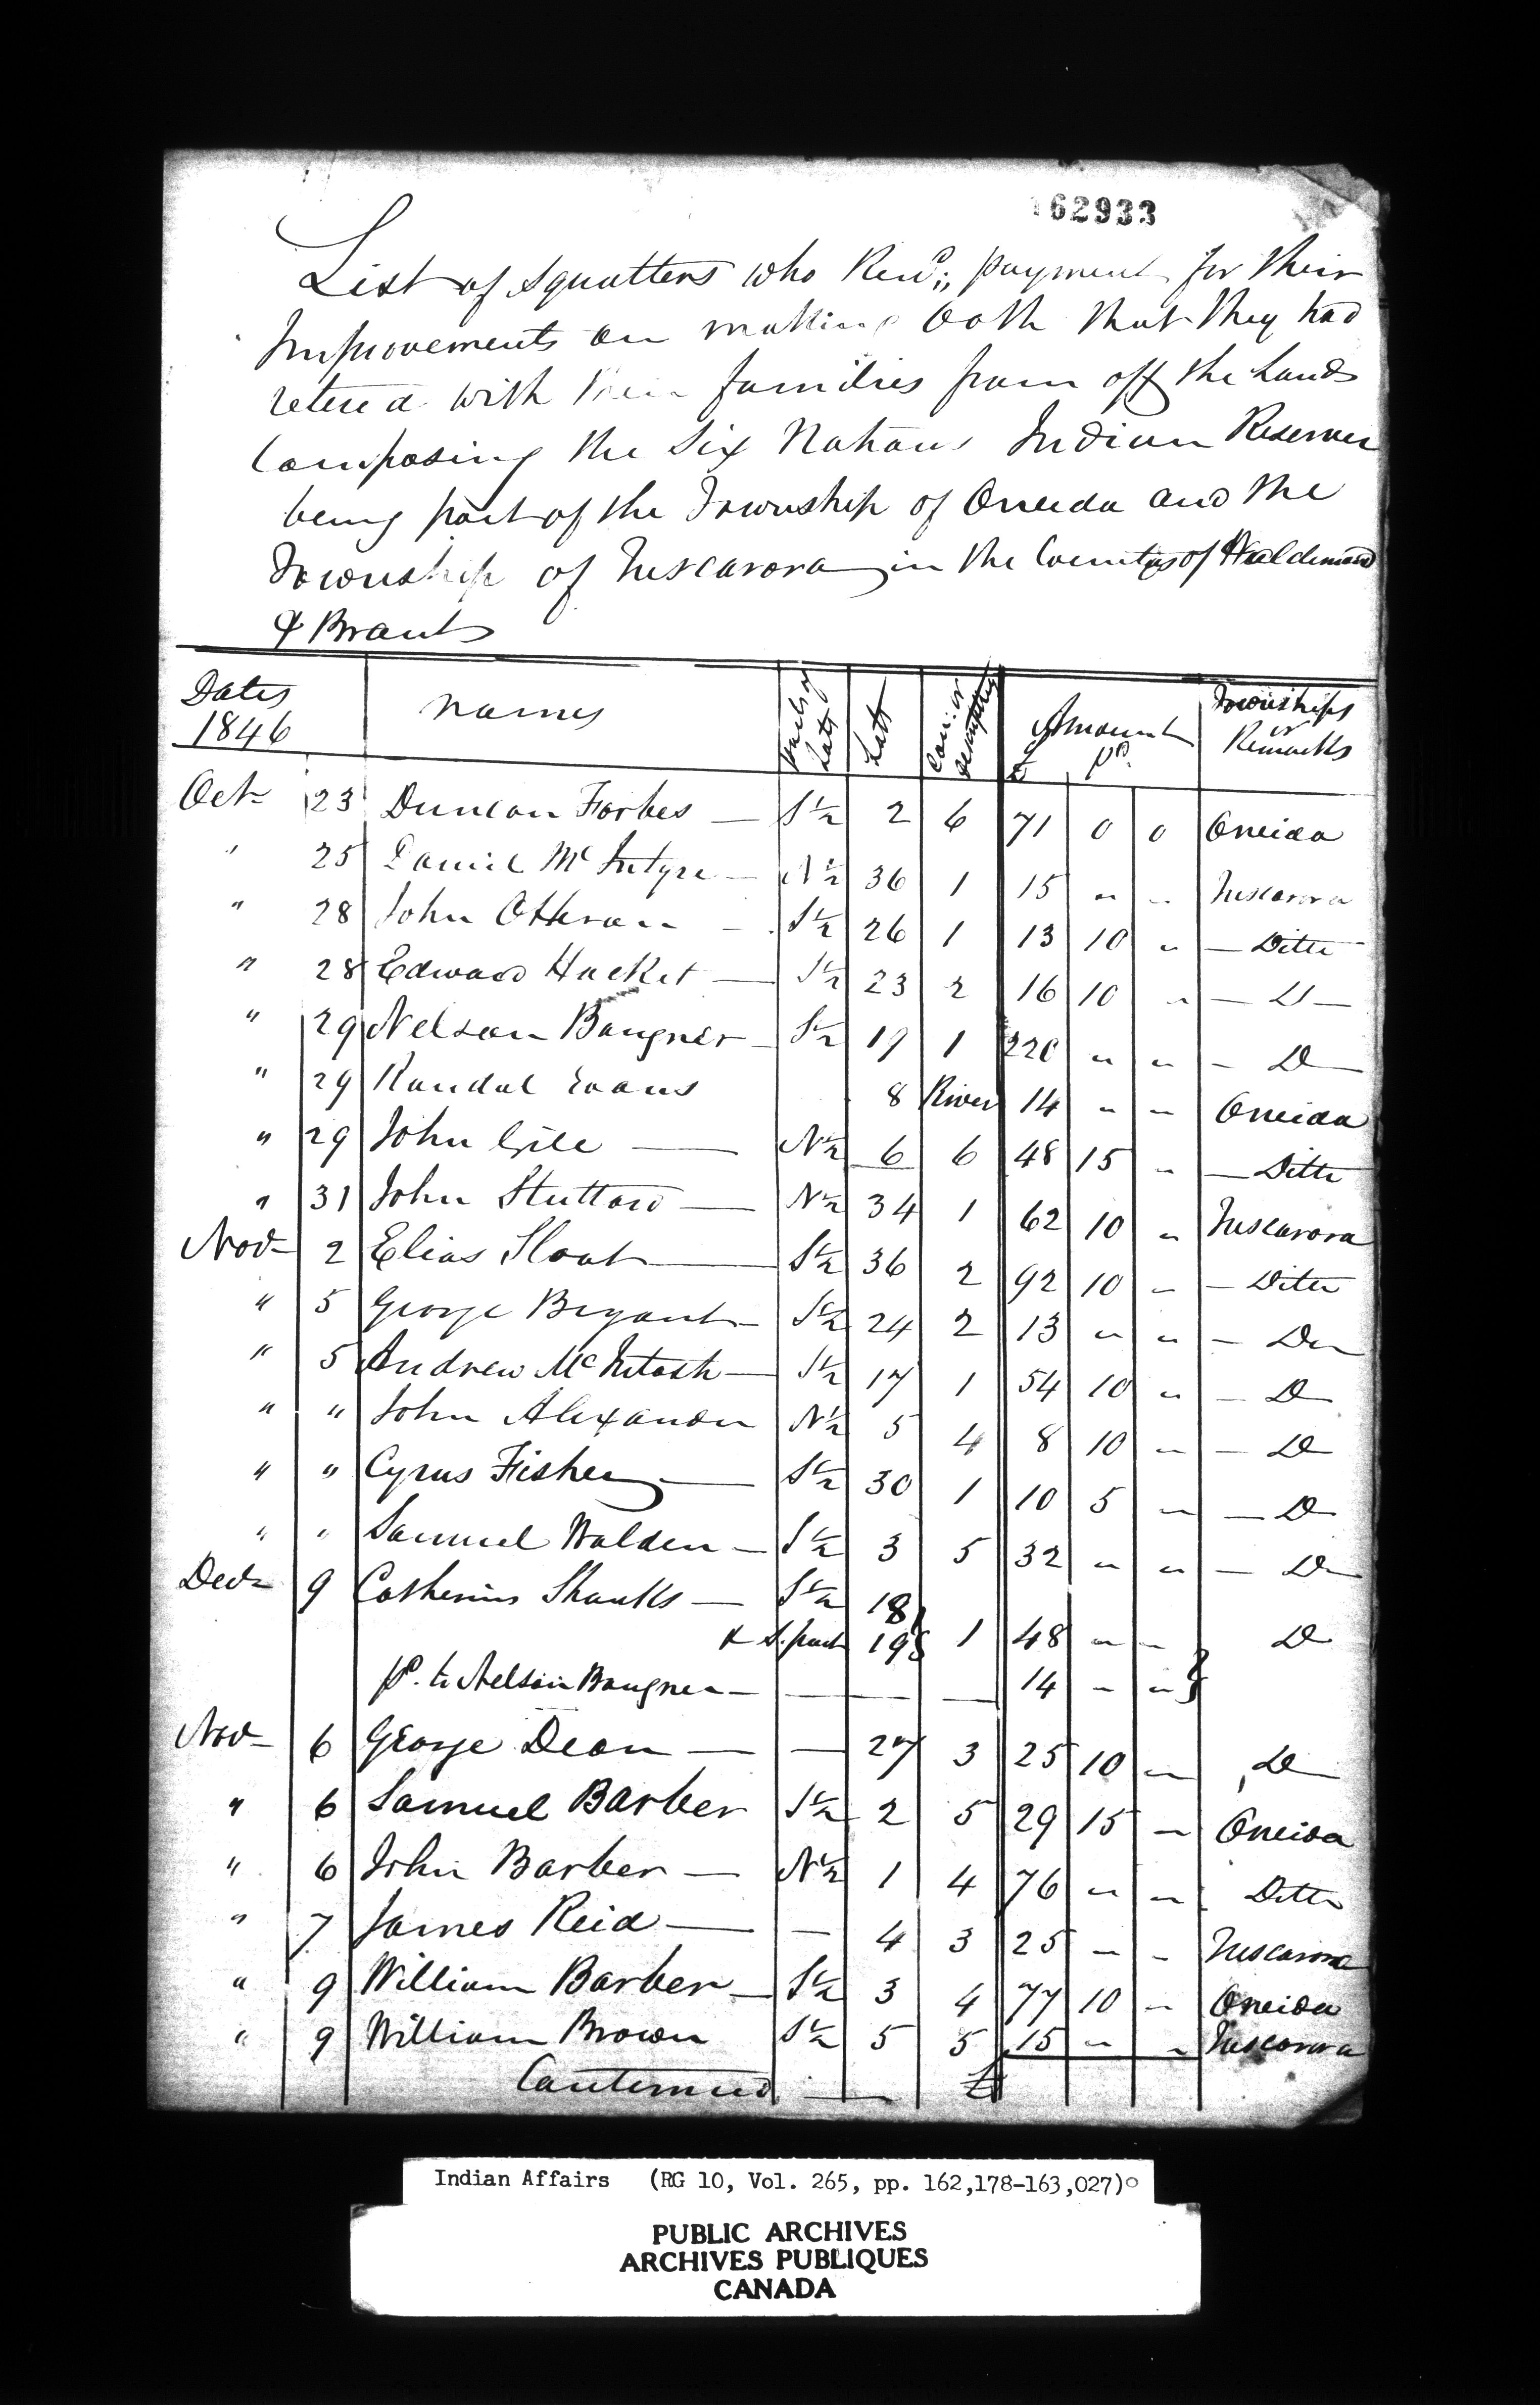 162933
List of Squatters who Recd., payment for their
Improvements on making Oath that they had
retired with their families from off the Lands
Composing the Six Nations Indian Reserves
being part of the Township of Oneida and the
Township of Tuscarora in the Counties of Haldimand
& Brant
Dates 1846 Names Parts of Lots Lots Con: or Amount pd. £ Townships or Remarks
Oct 23 Duncan Forbes — S½ 2 6 71 0 0 Oneida
" 25 Daniel McIntyre — N½ 36 1 15 " " Tuscarora
" 28 John — S½ 26 1 13 10 " — Ditto
" 28 Edward Hacket — S½ 23 2 16 10 " — D —
" 29 Nelson Baugner — S½ 19 1 220 " " — Do
" 29 Randal Evans 8 River 14 " " Oneida
" 29 John Gill — N½ 6 6 48 15 " — Ditto
" 31 John Stuttard — N½ 34 1 62 10 " Tuscarora
Nov 2 Elias Sloat — S½ 36 2 92 10 " — Ditto
" 5 George Bryant — S½ 24 2 13 " " — Do
" 5 Andrew McIntosh — S½ 17 1 54 10 " — Do
" " John Alexander N½ 5 4 8 10 " — Do
" " Cyrus Fisher — S½ 30 1 10 5 " — Do
" " Samuel Walden — S½ 3 5 32 " " — Do
Decr 9 Catherine Shanks — S½ 18}
& S. part 19} 1 48 " " Do
pd. to Nelson Baugner — — — — 14 " " }
Nov 6 George Dean — — 27 3 25 10 " Do
" 6 Samuel Barber S½ 2 5 29 15 " Oneida
" 6 John Barber — N½ 1 4 76 " " Ditto
" 7 James Reid — — 4 3 25 " " Tuscarora
" 9 William Barber — S½ 3 4 77 10 " Oneida
" 9 William Brown S½ 5 5 15 " " Tuscarora
Continued — £
Indian Affairs (RG 10, Vol. 265, pp. 162,178-163,027)
PUBLIC ARCHIVES
ARCHIVES PUBLIQUES
CANADA